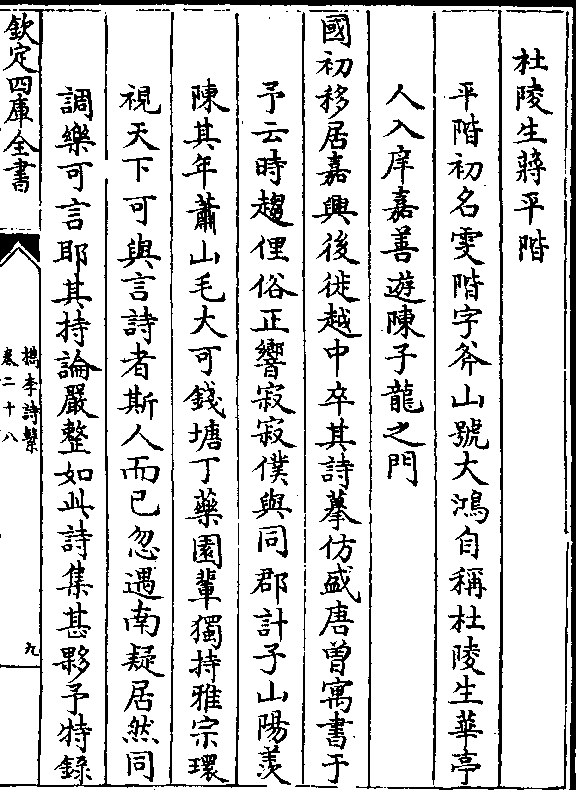 杜陵生蔣平階
平階初名雯階字斧山號大鴻自稱杜陵生華亭
人入庠嘉善遊陳子龍之門
國初移居嘉興後徙越中卒其詩摹仿盛唐曽寓書于
予云時趨俚俗正響寂寂僕與同郡計子山陽羨
陳其年蕭山毛大可錢塘丁藥園輩獨持雅宗環
視天下可與言詩者斯人而已忽遇南疑居然同
調樂可言耶其持論嚴整如此詩集甚夥予特錄
欽定四庫全書
檇李詩繫
卷二十八
九